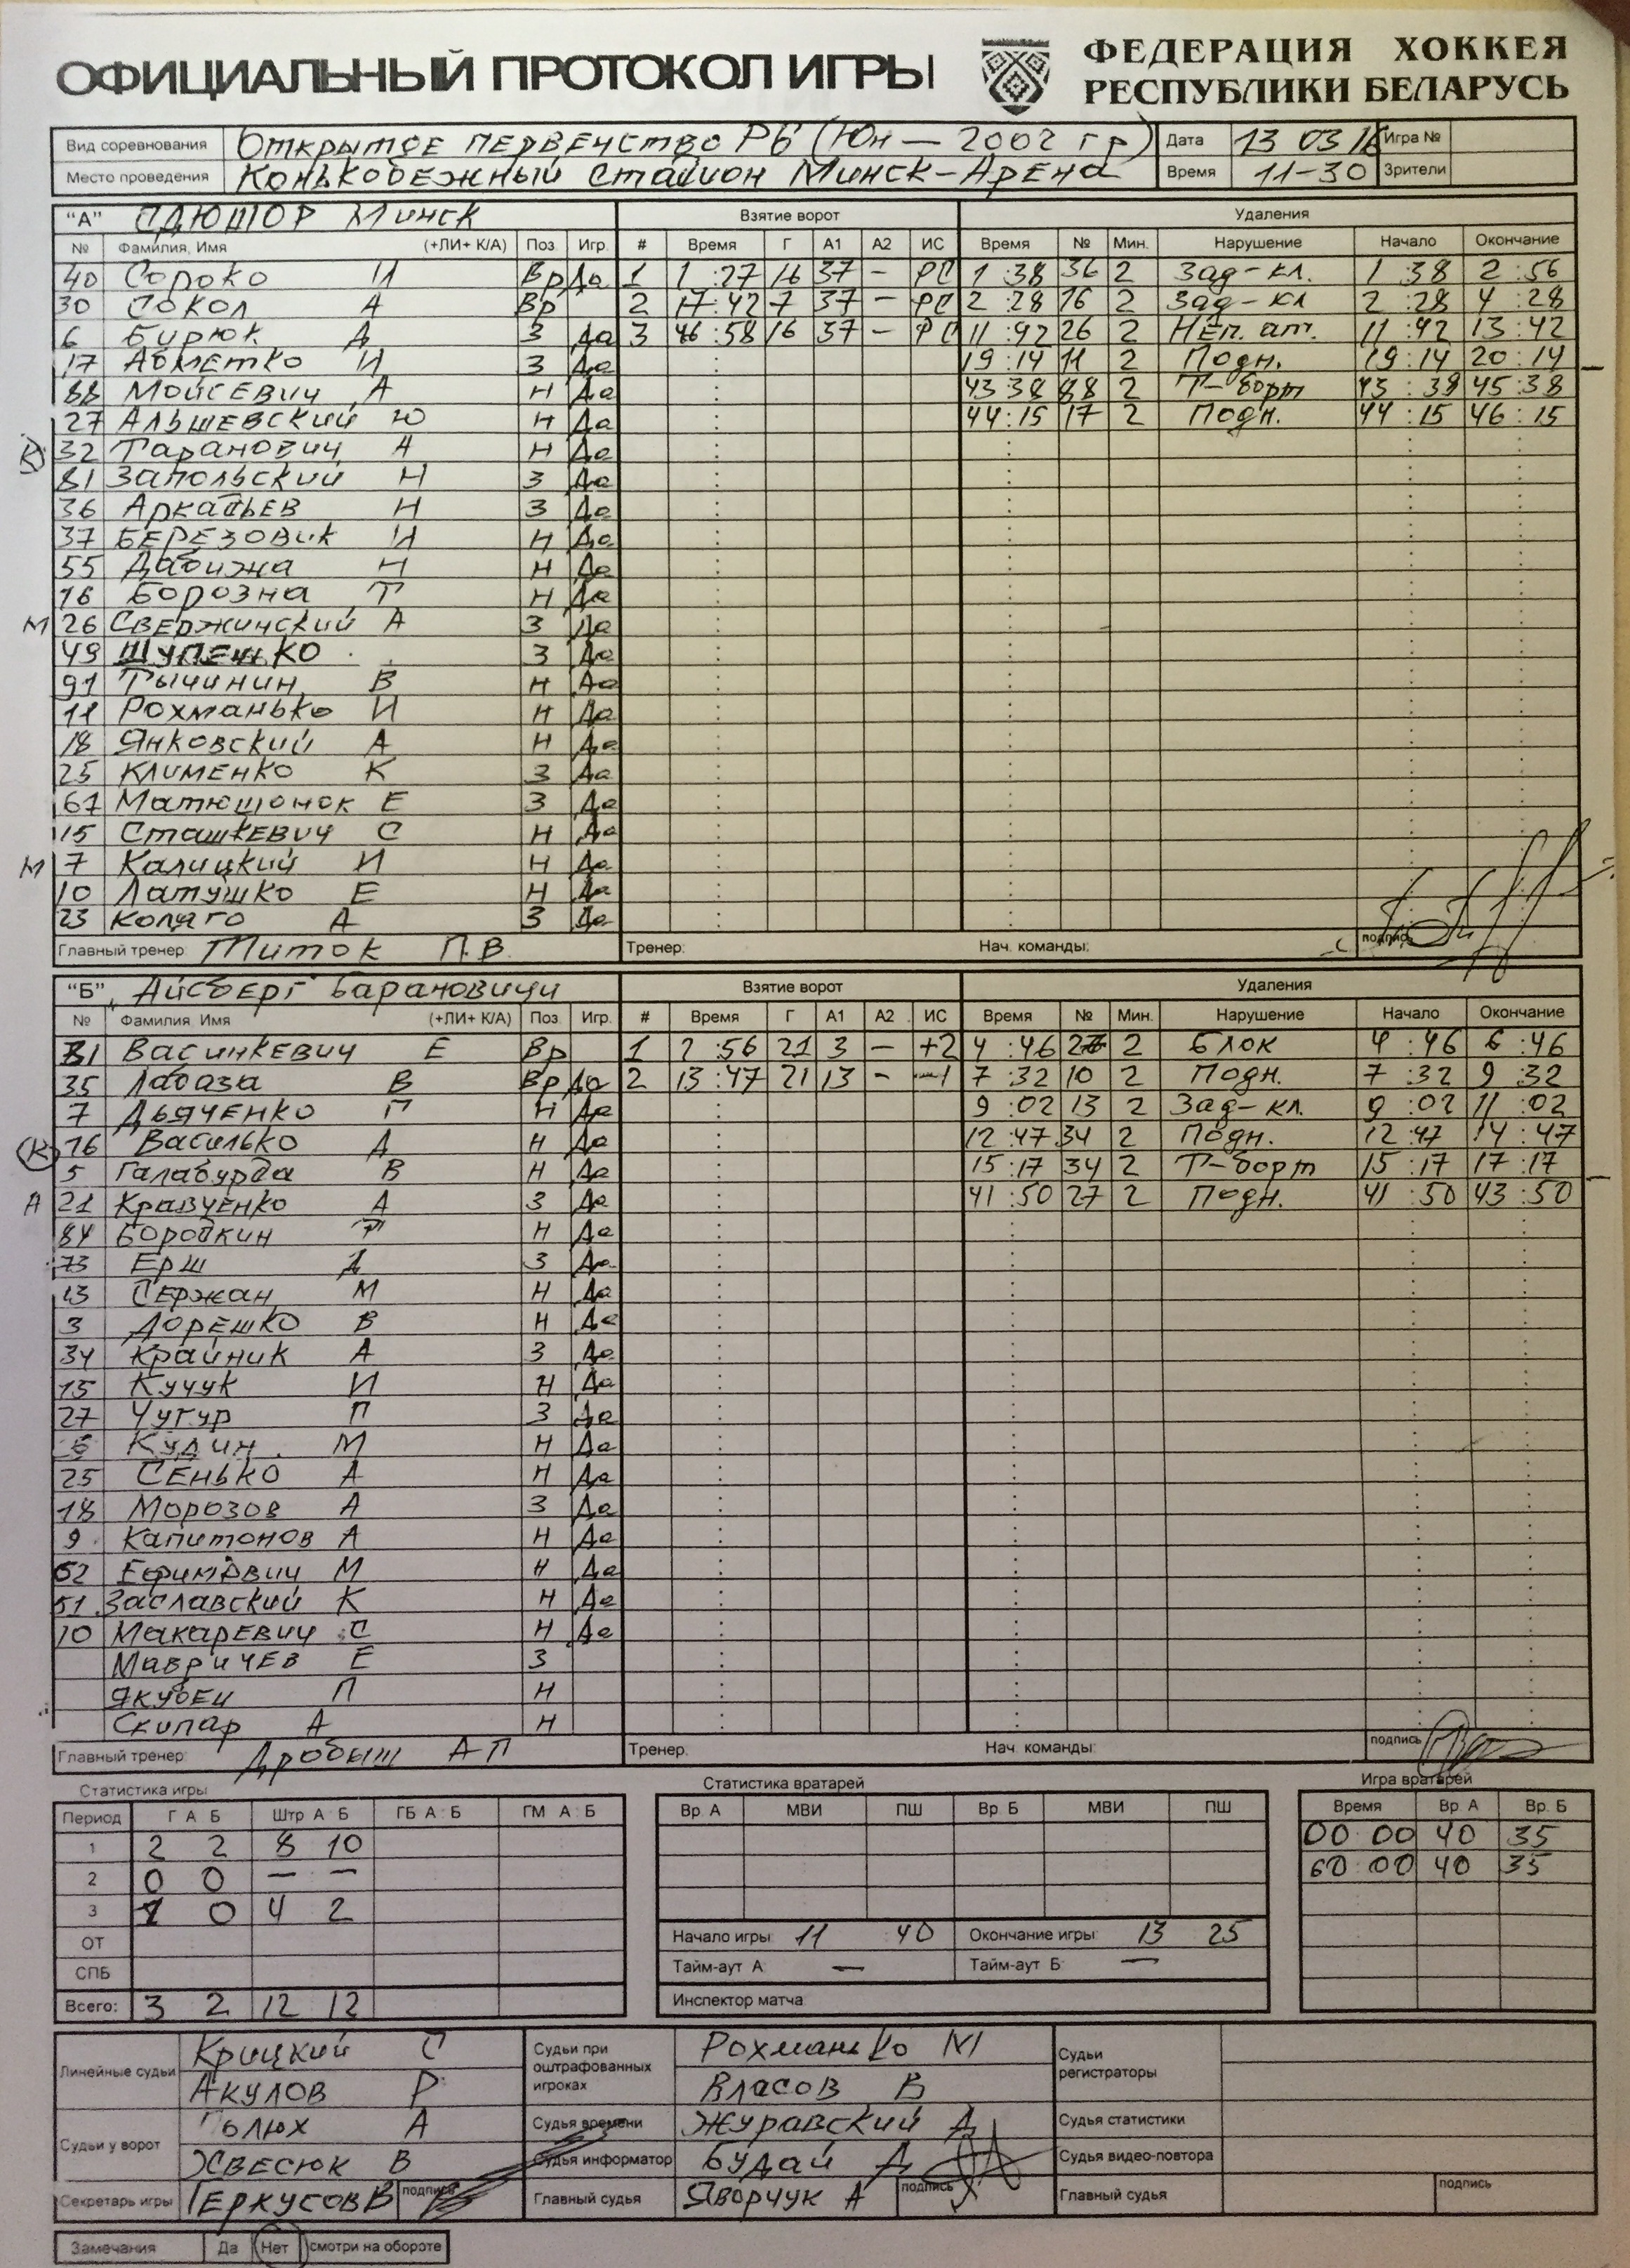 ОФИЦИАЛЬНЫЙ ПРОТОКОЛ ИГРЫ
ФЕДЕРАЦИЯ ХОККЕЯ
РЕСПУБЛИКИ БЕЛАРУСЬ
Вид соревнования Открытое первенство РБ (Юн — 2002 гр) Дата 13 03 16 Игра №
Место проведения Конькобежный стадион Минск-Арена Время 11-30 Зрители
"А" СДЮШОР Минск Взятие ворот Удаления
№ Фамилия, Имя (+ЛИ+ К/А) Поз. Игр. # Время Г А1 А2 ИС Время № Мин. Нарушение Начало Окончание
40 Сороко И Вр Да 1 1:27 16 37 - РС 1:38 36 2 Зад-кл. 1:38 2:56
30 Сокол А Вр 2 17:42 7 37 - РС 2:28 16 2 Зад-кл 2:28 4:28
6 Бирюк Д З Да 3 46:58 16 37 - РС 11:42 26 2 Неп. ат. 11:42 13:42
17 Аблетко И З Да 19:14 11 2 Подн. 19:14 20:14
88 Мойсевич А Н Да 43:38 88 2 Т-борт 43:38 45:38
27 Альшевский Ю Н Да 44:15 17 2 Подн. 44:15 46:15
К 32 Таранович А Н Да
81 Запольский Н З Да
36 Аркадьев Н З Да
37 Березовик И Н Да
55 Дабижа Н Н Да
16 Борозна Т Н Да
М 26 Свержинский А З Да
49 Шупенько З Да
91 Тычинин В Н Да
11 Рохманько И Н Да
18 Янковский А Н Да
25 Клименко К З Да
67 Матюшонок Е З Да
15 Сташкевич С Н Да
М 7 Калицкий И Н Да
10 Латушко Е Н Да
23 Коляго А З Да
Главный тренер: Титок П.В. Тренер: Нач. команды: подпись
"Б" Айсберг Барановичи Взятие ворот Удаления
№ Фамилия, Имя (+ЛИ+ К/А) Поз. Игр. # Время Г А1 А2 ИС Время № Мин. Нарушение Начало Окончание
31 Васинкевич Е Вр 1 2:56 21 3 - +2 4:46 27 2 Блок 4:46 6:46
35 Лабаза В Вр Да 2 13:47 21 13 - -1 7:32 10 2 Подн. 7:32 9:32
7 Дьяченко П Н Да 9:02 13 2 Зад-кл. 9:02 11:02
К 16 Василько А Н Да 12:47 34 2 Подн. 12:47 14:47
5 Галабурда В Н Да 15:17 34 2 Т-борт 15:17 17:17
А 21 Кравченко А З Да 41:50 27 2 Подн. 41:50 43:50
84 Бородкин Р Н Да
73 Ерш Д З Да
13 Сержан М Н Да
3 Дорешко В Н Да
34 Крайник А З Да
15 Кучук И Н Да
27 Чугур П З Да
Кудин М Н Да
25 Сенько А Н Да
18 Морозов А З Да
9 Капитонов А Н Да
52 Ефимович М Н Да
51 Заславский К Н Да
10 Макаревич С Н Да
Мавричев Е З
Якубец П Н
Скипар А Н
Главный тренер: Дробыш А П Тренер: Нач. команды: подпись
Статистика игры Статистика вратарей Игра вратарей
Период Г А Б Штр А Б ГБ А : Б ГМ А : Б Вр. А МВИ ПШ Вр. Б МВИ ПШ Время Вр. А Вр. Б
1 2 2 8 10 00 00 40 35
2 0 0 - - 60:00 40 35
3 1 0 4 2
ОТ Начало игры: 11 40 Окончание игры: 13 25
СПБ Тайм-аут А: — Тайм-аут Б: —
Всего: 3 2 12 12 Инспектор матча:
Линейные судьи Крицкий С Судьи при оштрафованных игроках Рохманько М Судьи регистраторы
Акулов Р Власов В
Судьи у ворот Голюх А Судья времени Журавский Д Судья статистики
Хвесюк В Судья информатор Будай Д Судья видео-повтора
Секретарь игры Геркусов В подпись Главный судья Яворчук А подпись Главный судья подпись
Замечания Да Нет смотри на обороте